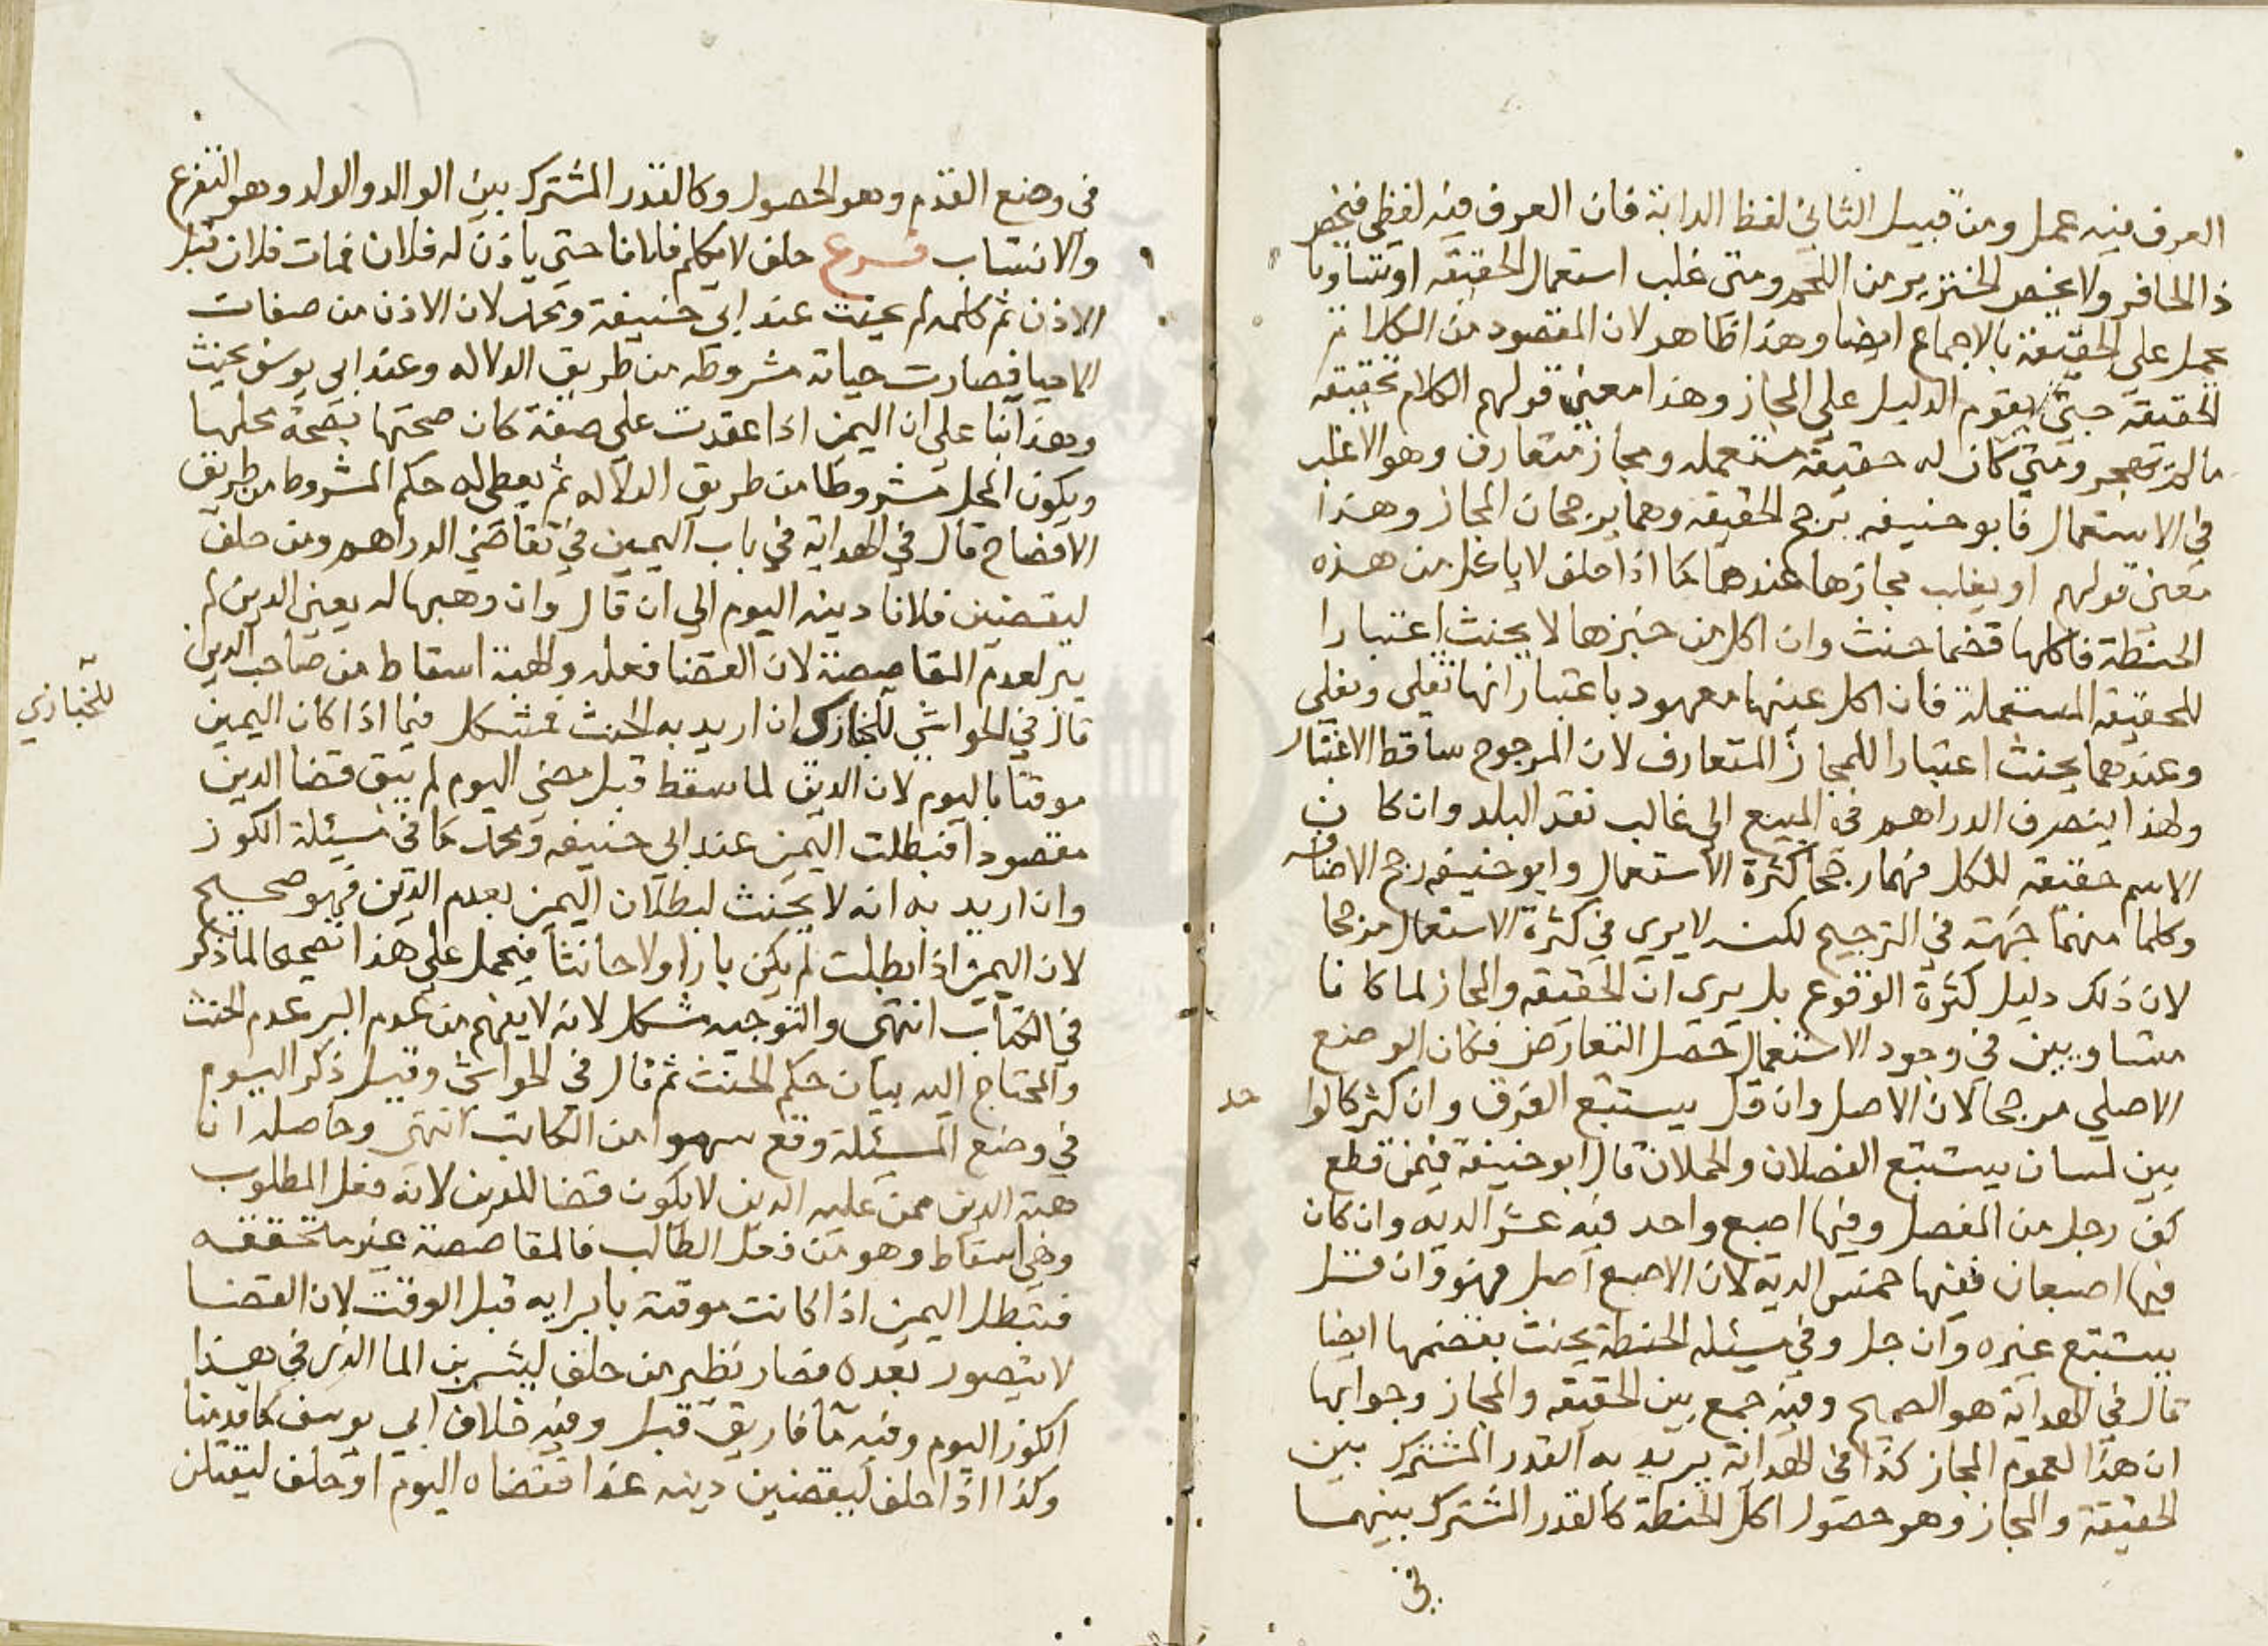 العرف فيه عمل ومن قبيل الثاني لفظ الدابة فان العرف فيه لفظي فيخص
ذا الحافر ولا يخص الخنزير من اللحم ومتى غلب استعمال الحقيقه او تساويا
يحمل على الحقيقة بالاجماع ايضا وهذا ظاهر لان المقصود من الكلام
الحقيقة حتى يقوم الدليل على المجاز وهذا معنى قولهم الكلام بحقيقته
ما لم تهجر ومتى كان له حقيقة مستعمله ومجاز متعارف وهو الاغلب
في الاستعمال فابو حنيفه يرجح الحقيقه وهما يرجحان المجاز وهذا
معنى قولهم او يغلب مجازها عندهما كما اذا حلف لا ياكل من هذه
الحنطة فاكلها قضما حنث وان اكل من خبزها لا يحنث اعتبارا
للحقيقه المستعملة فان اكل عينها معهود باعتبار انها تغلى وتقلى
وعندهما يحنث اعتبارا للمجاز المتعارف لان المرجوح ساقط الاعتبار
ولهذا ينصرف الدراهم في المبيع الى غالب نقد البلد وان كان
الاسم حقيقه للكل فهما رجحا كثرة الاستعمال وابو حنيفه رجح الاضافه
وكلما منهما جهة في الترجيح لكنه لا يرى في كثرة الاستعمال مرجحا
لان ذلك دليل كثرة الوقوع بل يرى ان الحقيقه والمجاز لما كانا
متساويين في وجود الاستعمال حصل التعارض فكان الوضع
الاصلي مرجحا لان الاصل وان قل يستتبع الفرق وان كثر كالوا
حد
بين لسان يستتبع الفصلان والحملان قال ابو حنيفة فيمن قطع
كف رجل من المفصل وفيها اصبع واحد فيه عشر الديه وان كان
فيها اصبعان ففيها خمس الديه لان الاصبع اصل فهو وان قل
يستتبع غيره وان جل وفي مسئله الحنطة يحنث بقضمها ايضا
قال في الهداية هو الصحيح وفيه جمع بين الحقيقه والمجاز وجوابها
ان هذا لعموم المجاز كذا في الهداية يريد به القدر المشترك بين
الحقيقة والمجاز وهو حصول اكل الحنطة كالقدر المشترك بينهما
في
في وضع القدم وهو الحصول وكالقدر المشترك بين الوالد والولد وهو التفرع
والانتساب فرع حلف لا يكلم فلانا حتى ياذن له فلان فمات فلان قبل
الاذن ثم كلمه لم يحنث عند ابي حنيفة ومحمد لان الاذن من صفات
الاحيا فصارت حياته مشروطه من طريق الدلاله وعند ابي يوسف يحنث
وهذا بنا على ان اليمين اذا عقدت على صفة كان صحتها بصحة محلها
ويكون المحل مشروطا من طريق الدلاله ثم يعطى له حكم المشروط من طريق
الافصاح قال في الهداية في باب اليمين في تقاضي الدراهم ومن حلف
ليقضين فلانا دينه اليوم الي ان قال وان وهبها له يعني الدين لم
يبر لعدم المقاصصة لان القضا فعله والهبة اسقاط من صاحب الدين
قال في الحواشي للخبازي ان اريد به الحنث فمشكل فيما اذا كان اليمين
للخبازي
موقتا باليوم لان الدين لما سقط قبل مضي اليوم لم يبق قضا الدين
مقصودا فبطلت اليمين عند ابي حنيفه ومحمد كما في مسئلة الكوز
وان اريد به انه لا يحنث لبطلان اليمين بعدم الدين فهو صحيح
لان اليمين اذا بطلت لم يكن بارا ولا حانثا فيحمل على هذا تصحيحا لما ذكر
في الكتاب انتهى والتوجيه مشكل لانه لا يفهم من عدم البر عدم الحنث
والمحتاج اليه بيان حكم الحنث ثم قال في الحواشي وقيل ذكر اليوم
في وضع المسئلة وقع سهوا من الكاتب انتهى وحاصله ان
هبة الدين ممن عليه الدين لا يكون قضا للدين لانه فعل المطلوب
وهي اسقاط وهو من فعل الطالب فالمقاصصة غير متحققه
فتبطل اليمين اذا كانت موقتة بابرايه قبل الوقت لان القضا
لا يتصور بعده فصار نظير من حلف ليشربن الما الذي في هذا
الكوز اليوم وفيه ما فاريق قبل وفيه خلاف ابي يوسف كما قدمنا
وكذا اذا حلف ليقضين دينه غدا فقضاه اليوم او حلف ليقتلن